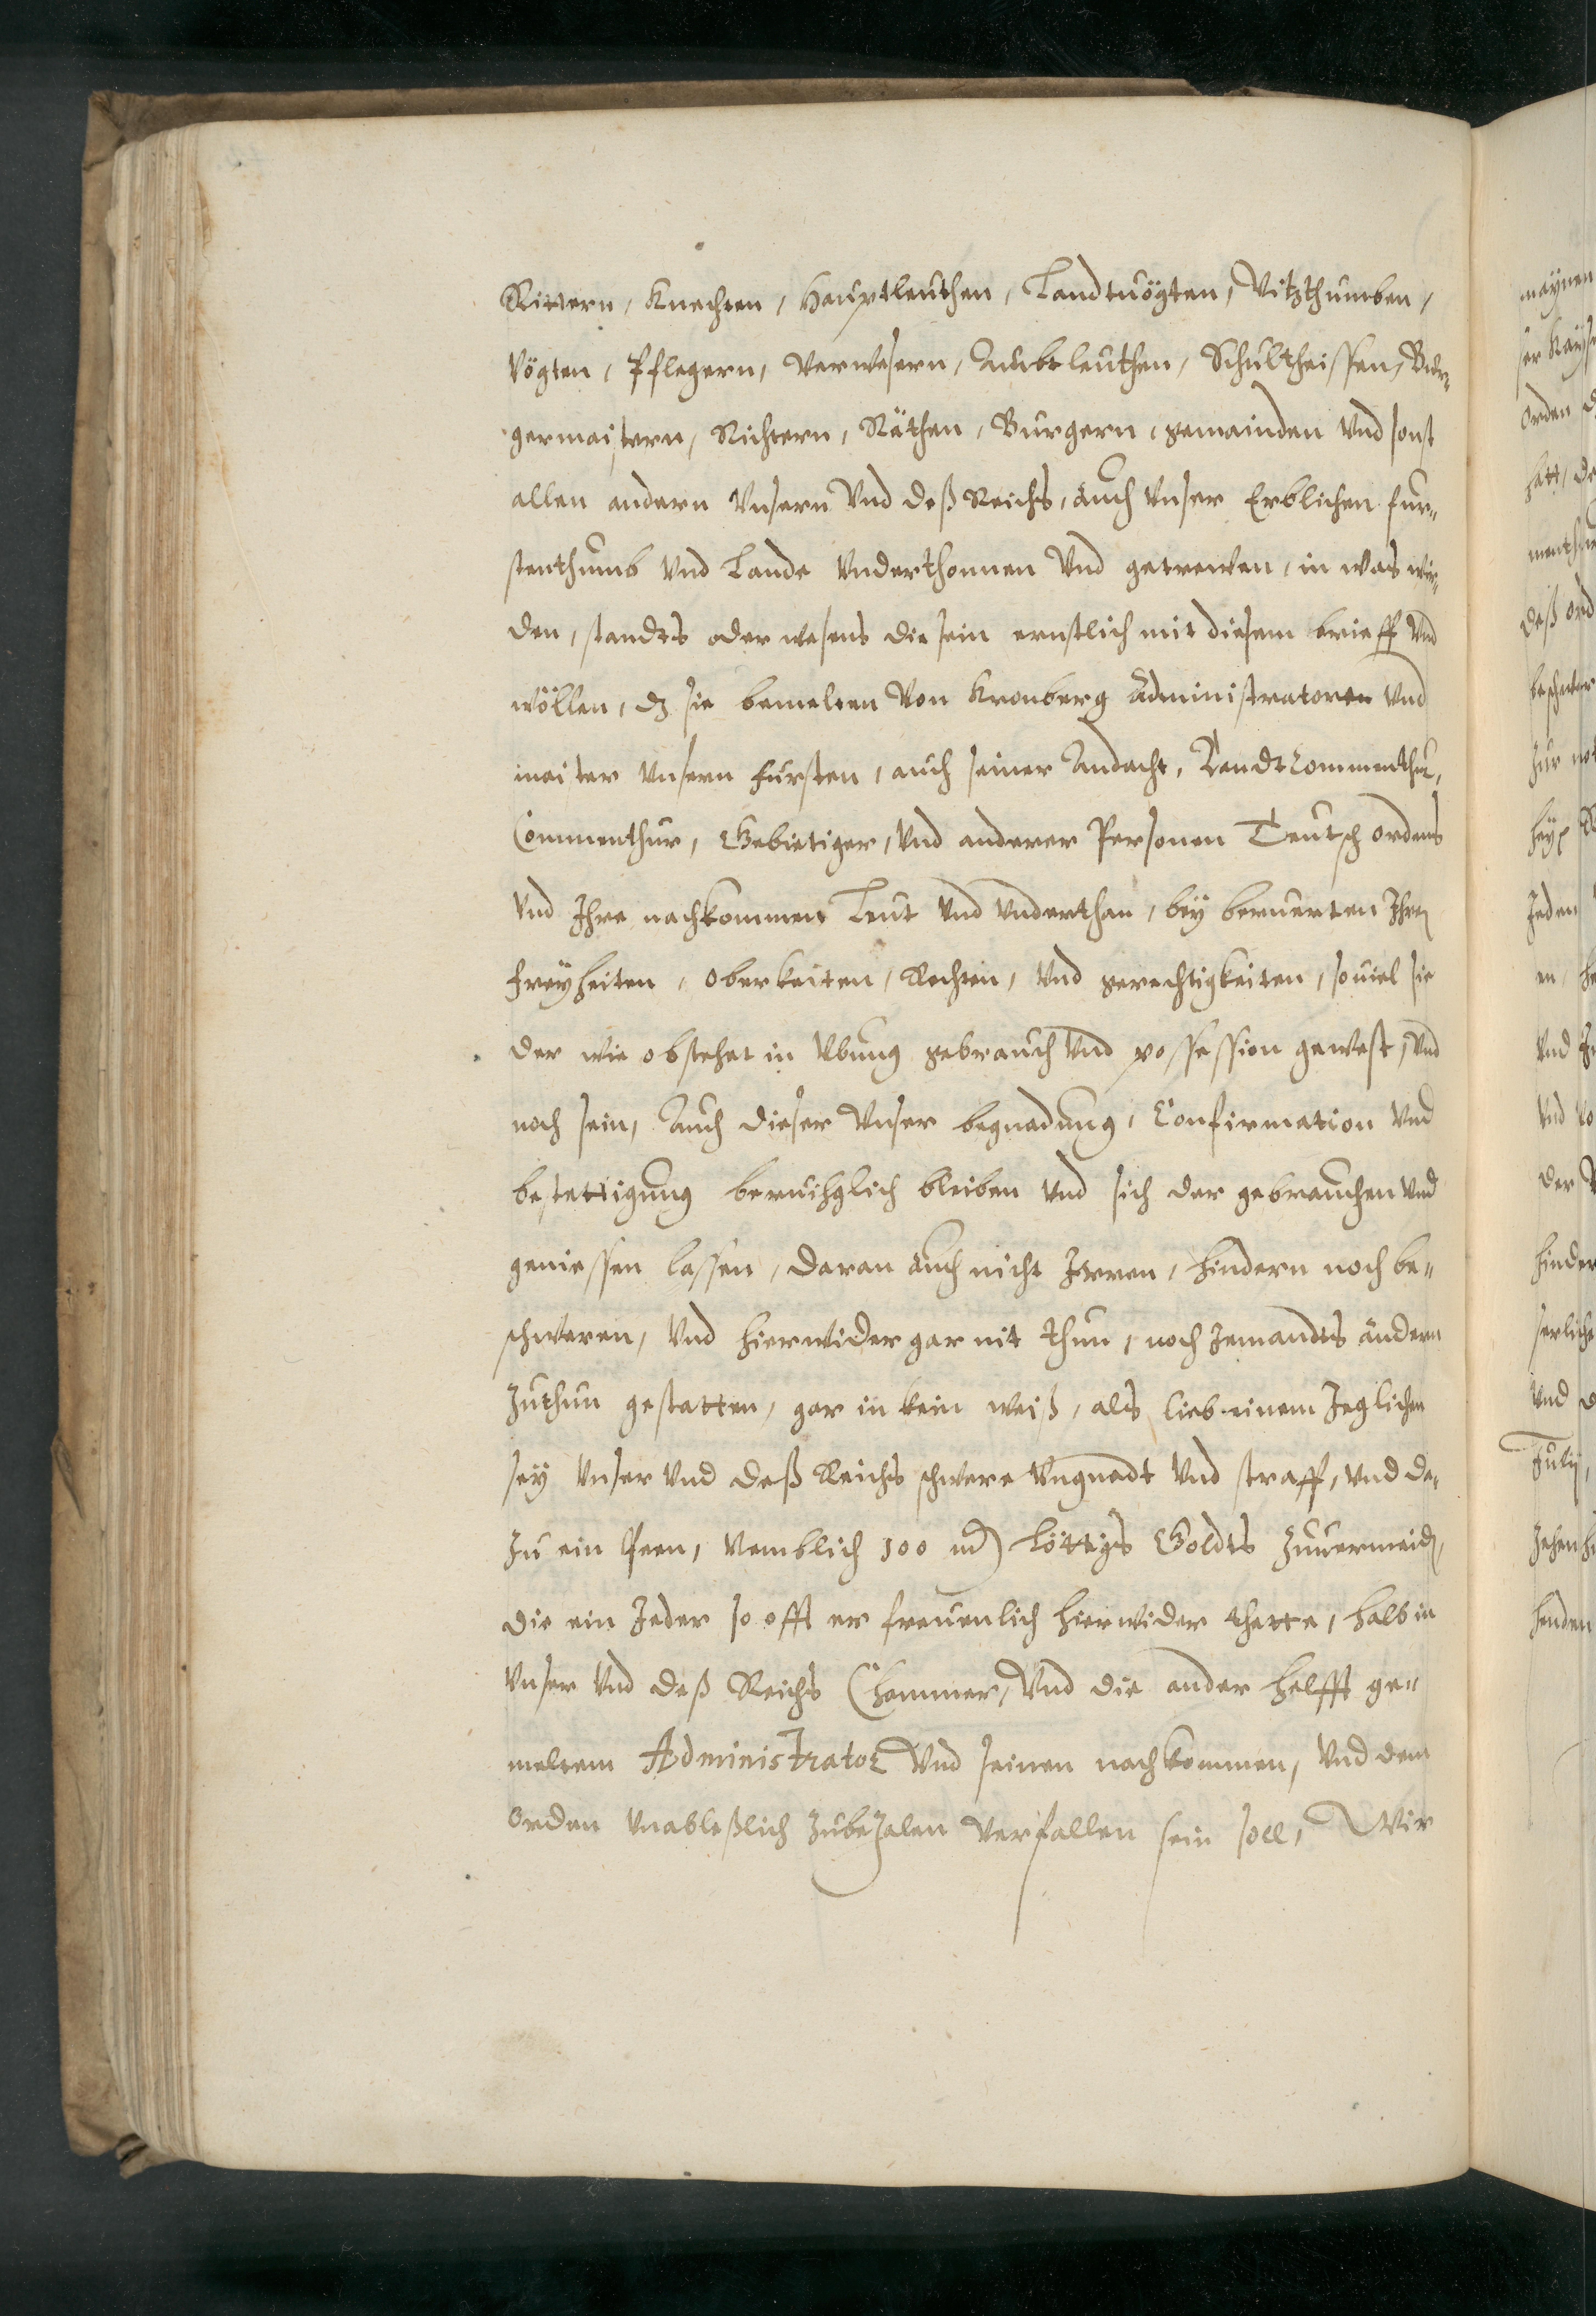 Rittern, Knechten, Hauptleuthen, Landtuögten, Vitzthumben,
Vögten, Pflegern, Verwesern, Ambtleuthen, Schultheissen, Bur-
germaistern, Richtern, Räthen, Burgern, gemainden Vnd sonst
allen andern Vnsern Vnd deß Reichs, auch Vnser Erblichen Fur-
stenthumb Vnd Lande Vnderthonnen Vnd getrewen, in was wir-
den, standts oder wesens die sein ernstlich mit diesem brieff Vnd
wöllen, dz sie bemelten Von Kronberg Administratoren Vnd
maister Vnsern Fursten, auch seiner Andacht, Landt Commenthur,
Commenthur, Gebietiger, Vnd anderer Personen Teutsch ordens
Vnd Ihre nachkommen Leut Vnd Vnderthan, bey beruerten Ihren
Freyheiten, Oberkeiten, Rechten, Vnd gerechtigkeiten, souiel sie
der wie obstehet in Vbung gebrauch Vnd possession gewest, Vnd
noch sein, Auch dieser Vnser begnadung, Confirmation Vnd
bestettigung beruihglich bleiben Vnd sich der gebrauchen Vnd
geniessen lassen, daran auch nicht Irren, hindern noch be-
schweren, Vnd hierwider gar nit thun, noch Jemandts andern
Zuthun gestatten, gar in kein weiß, als lieb einem Jeglichen
sey Vnser Vnd deß Reichs schwere Vngnadt Vnd straff, Vnd da-
Zu ein Peen, Nemblich 100 m Löttigs Goldts Zuuermeiden,
die ein Jeder so offt er freuenlich hierwider thette, halb in
Vnser Vnd deß Reichs Chammer, Vnd die ander helfft ge-
meltem Administrator Vnd seinen nachkommen, Vnd dem
Orden Vnableßlich Zubezalen Verfallen sein soll, Wir